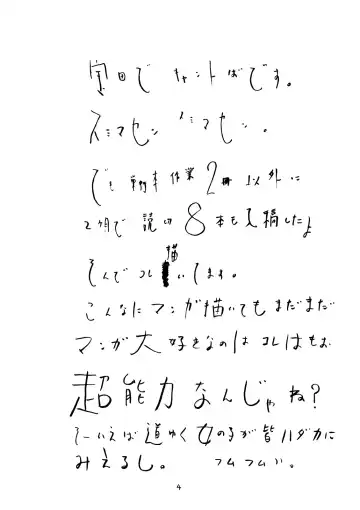 全日で キャントばです。
スミマセン ズミマセン。
でも 単行本 作業 2冊 以外に
2ヶ月で 読切 8本も入稿したよ
そんで コレ描いてます。
こんなに マンガ描いても まだまだ
マンガ大好きなのは コレはもお
超能力なんじゃね?
そーいえば 道ゆく女の子が皆ハダカに
みえるし。 フムフム。
4